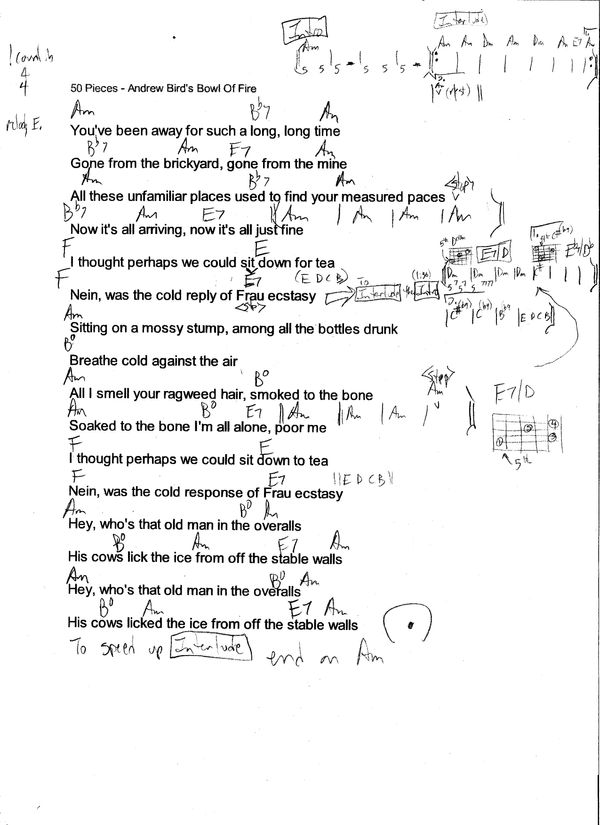 Intro
Interlude
Am
Am Am Dm Am Dm Am E7 Am
! Count in
4
4
5 5 5 - 5 5 5 -
50 Pieces - Andrew Bird's Bowl Of Fire
(rest)
Am Bb7 Am
You've been away for such a long, long time
Bb7 Am E7 Am
Gone from the brickyard, gone from the mine
Am Bb7 Am <stop>
All these unfamiliar places used to find your measured paces
Bb7 Am E7 || Am | Am | Am | Am
Now it's all arriving, now it's all just fine
F E
I thought perhaps we could sit down for tea
F E7 (E D C B)
Nein, was the cold reply of Frau ecstasy
<stop>
To Interlude
5th
E7/D
1.
| Dm | Dm | Dm |
2.
| E D C B ||
Am
Sitting on a mossy stump, among all the bottles drunk
B°
Breathe cold against the air
Am B° <stop> Am
All I smell your ragweed hair, smoked to the bone
Am B° E7 || Am | Am | Am |
Soaked to the bone I'm all alone, poor me
E7/D
1 2 4 3
5th
F E
I thought perhaps we could sit down to tea
F E7 || E D C B ||
Nein, was the cold response of Frau ecstasy
Am B° Am
Hey, who's that old man in the overalls
B° Am E7 Am
His cows lick the ice from off the stable walls
Am B° Am
Hey, who's that old man in the overalls
B° Am E7 Am
His cows licked the ice from off the stable walls
To speed up Interlude end on Am